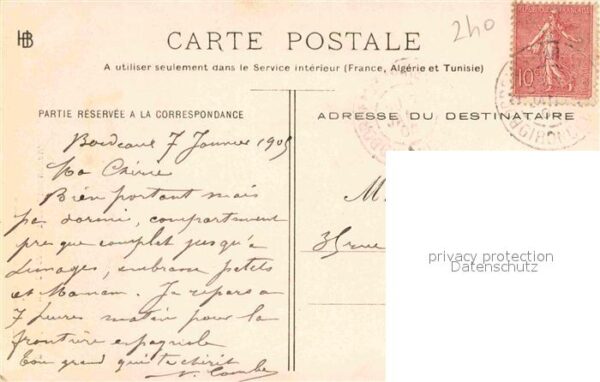 HB
CARTE POSTALE
240
A utiliser seulement dans le Service intérieur (France, Algérie et Tunisie)
REPUBLIQUE FRANÇAISE
10
GIRONDE
PARTIE RÉSERVÉE A LA CORRESPONDANCE
ADRESSE DU DESTINATAIRE
Bordeaux 7 Janvier 1905
Ma Chérie
Bien portant mais
pas dormi, compartiment
presque complet jusqu'à
Limoges, embrasse petits
et Maman. Je repars à
7 heures matin pour la
frontière espagnole
Ton grand qui te chérit
M.
35 rue
privacy protection
Datenschutz